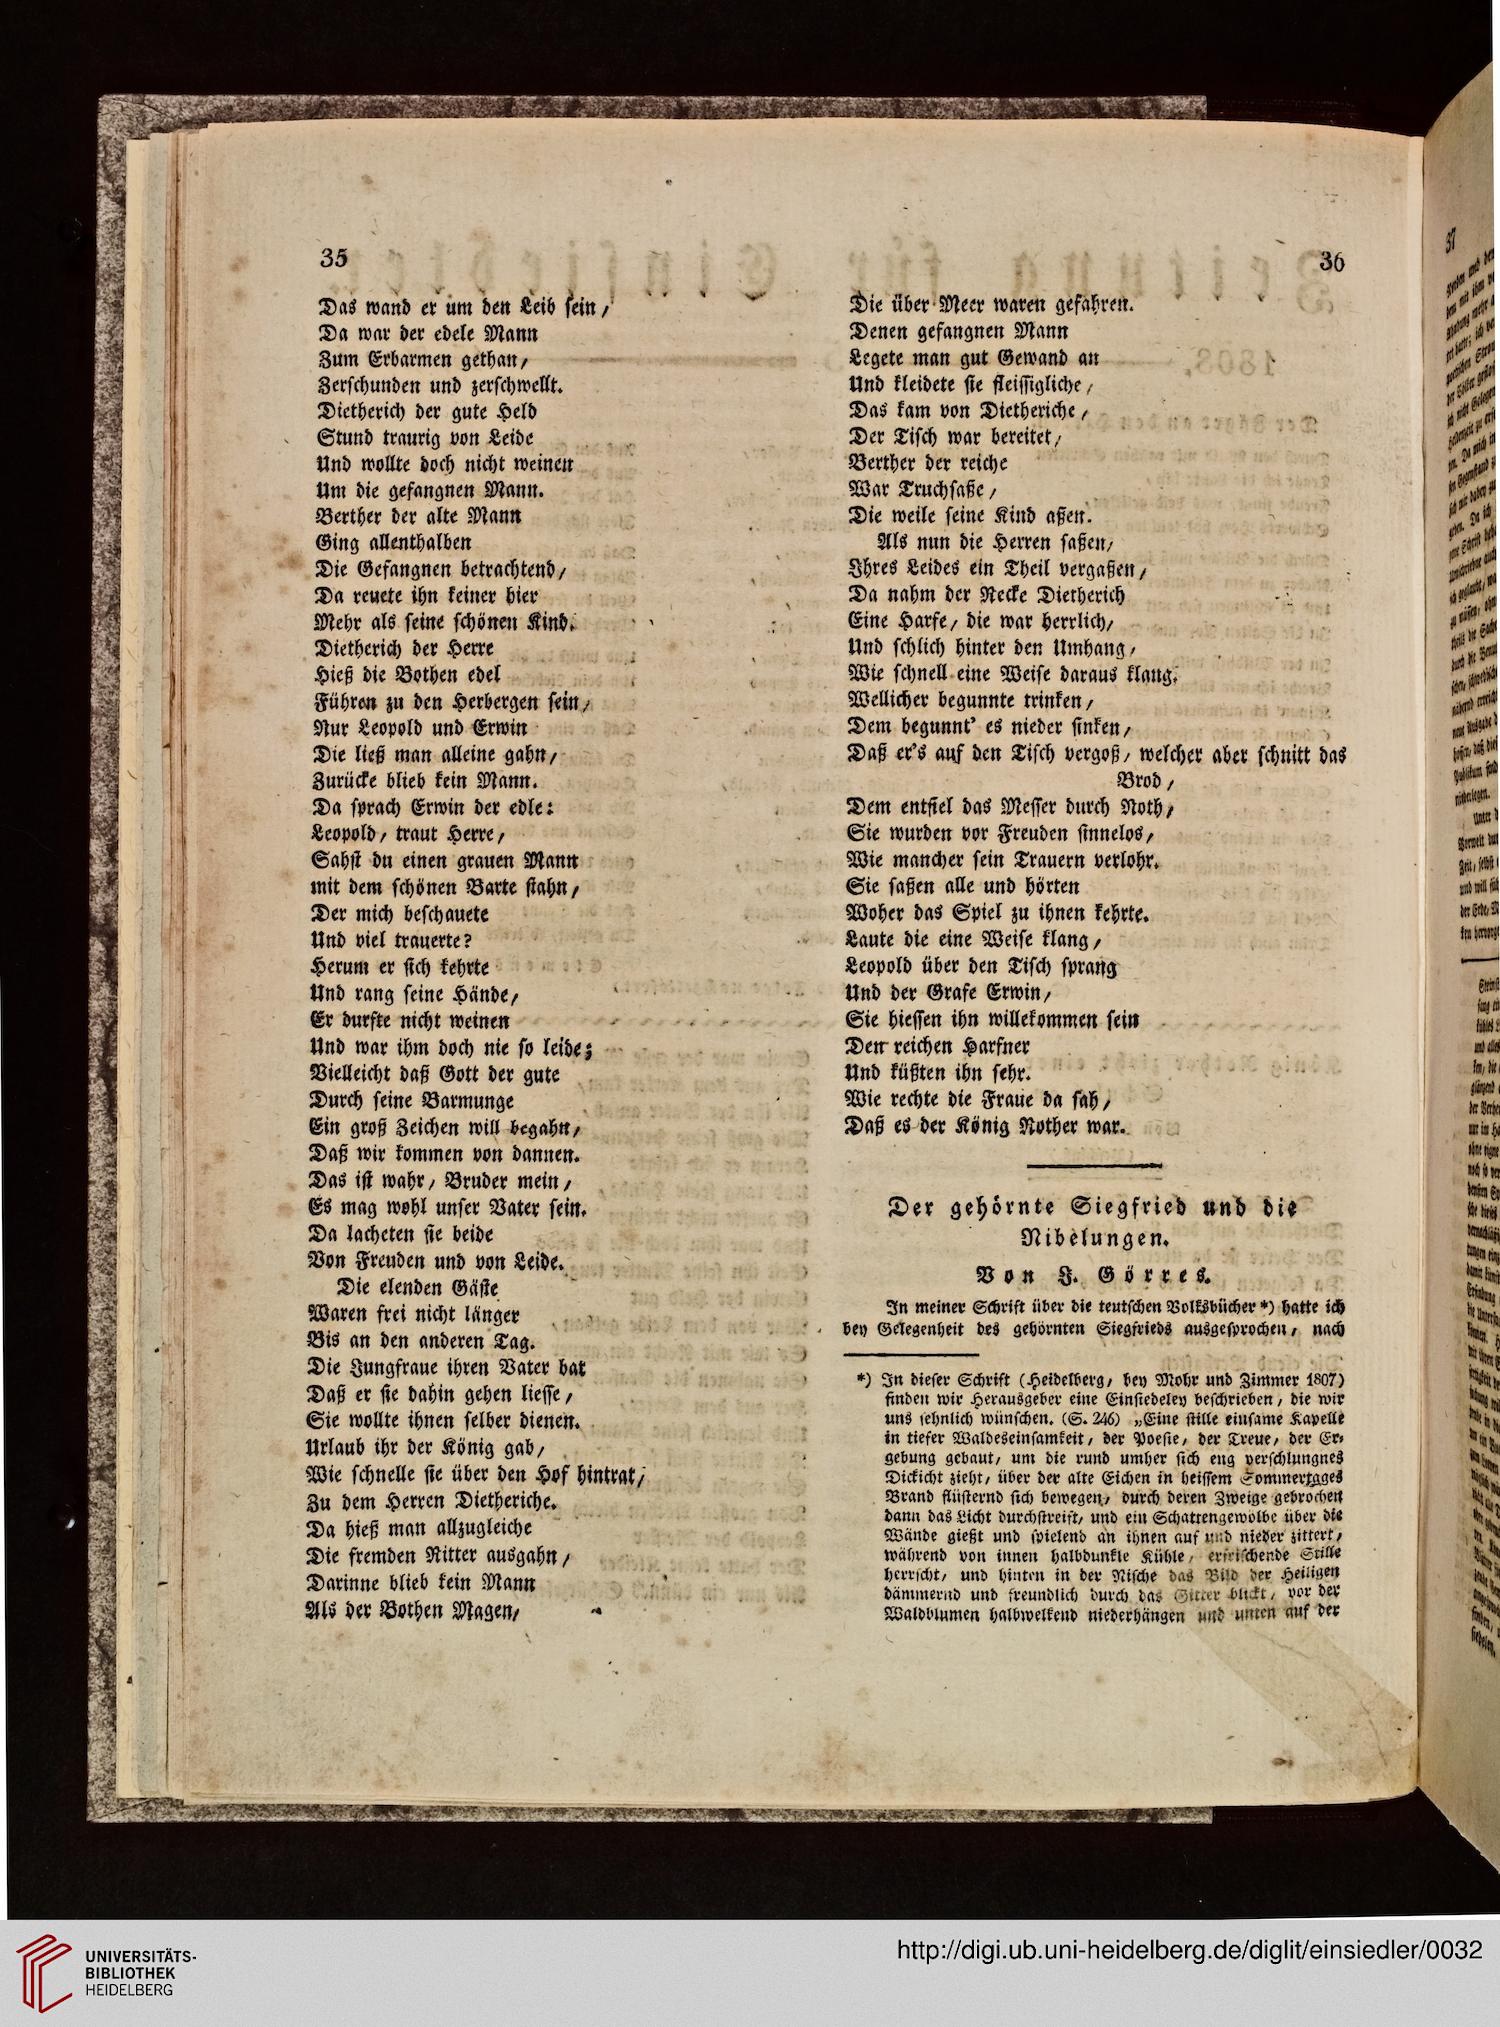 35
Das wand er um den Leib sein,
Da war der edele Mann
Zum Erbarmen gethan,
Zerschunden und zerschwellt.
Dietherich der gute Held
Stund traurig von Leide
Und wollte doch nicht weinen
Um die gefangnen Mann.
Berther der alte Mann
Ging allenthalben
Die Gefangnen betrachtend,
Da reuete ihn keiner hier
Mehr als seine schönen Kind.
Dietherich der Herre
Hieß die Bothen edel
Führen zu den Herbergen sein,
Nur Leopold und Erwin
Die ließ man alleine gahn,
Zurücke blieb kein Mann.
Da sprach Erwin der edle:
Leopold, traut Herre,
Sahst du einen grauen Mann
mit dem schönen Barte stahn,
Der mich beschauete
Und viel trauerte?
Herum er sich kehrte
Und rang seine Hände,
Er durfte nicht weinen
Und war ihm doch nie so leide;
Vielleicht daß Gott der gute
Durch seine Barmunge
Ein groß Zeichen will begahn,
Daß wir kommen von dannen.
Das ist wahr, Bruder mein,
Es mag wohl unser Vater sein.
Da lacheten sie beide
Von Freuden und von Leide.
Die elenden Gäste
Waren frei nicht länger
Bis an den anderen Tag.
Die Jungfraue ihren Vater bat
Daß er sie dahin gehen liesse,
Sie wollte ihnen selber dienen.
Urlaub ihr der König gab,
Wie schnelle sie über den Hof hintrat,
Zu dem Herren Dietheriche.
Da hieß man allzugleiche
Die fremden Ritter ausgahn,
Darinne blieb kein Mann
Als der Bothen Magen,
36
Die über Meer waren gefahren.
Denen gefangnen Mann
Legete man gut Gewand an
Und kleidete sie fleissigliche,
Das kam von Dietheriche,
Der Tisch war bereitet,
Berther der reiche
War Truchsaße,
Die weile seine Kind aßen.
Als nun die Herren saßen,
Ihres Leides ein Theil vergaßen,
Da nahm der Recke Dietherich
Eine Harfe, die war herrlich,
Und schlich hinter den Umhang,
Wie schnell eine Weise daraus klang.
Wellicher begunnte trinken,
Dem begunnt' es nieder sinken,
Daß er's auf den Tisch vergoß, welcher aber schnitt das
Brod,
Dem entfiel das Messer durch Noth,
Sie wurden vor Freuden sinnelos,
Wie mancher sein Trauern verlohr.
Sie saßen alle und hörten
Woher das Spiel zu ihnen kehrte.
Laute die eine Weise klang,
Leopold über den Tisch sprang
Und der Grafe Erwin,
Sie hiessen ihn willekommen sein
Den reichen Harfner
Und küßten ihn sehr.
Wie rechte die Fraue da sah,
Daß es der König Rother war.
Der gehörnte Siegfried und die
Nibelungen.
Von J. Görres.
In meiner Schrift über die teutschen Volksbücher *) hatte ich
bey Gelegenheit des gehörnten Siegfrieds ausgesprochen, nach
*) In dieser Schrift (Heidelberg, bey Mohr und Zimmer 1807)
finden wir Herausgeber eine Einsiedeley beschrieben, die wir
uns sehnlich wünschen. (S. 246) „Eine stille einsame Kapelle
in tiefer Waldeseinsamkeit, der Poesie, der Treue, der Er-
gebung gebaut, um die rund umher sich eng verschlungnes
Dickicht zieht, über der alte Eichen in heissem Sommertages
Brand flüsternd sich bewegen, durch deren Zweige gebrochen
dann das Licht durchstreift, und ein Schattengewölbe über die
Wände gießt und spielend an ihnen auf und nieder zittert,
während von innen halbdunkle Kühle, erfrischende Stille
herrscht, und hinten in der Nische das Bild der Heiligen
dämmernd und freundlich durch das Gitter blickt, vor der
Waldblumen halbwelkend niederhängen und unten auf der
37
UNIVERSITÄTS-
BIBLIOTHEK
HEIDELBERG
http://digi.ub.uni-heidelberg.de/diglit/einsiedler/0032